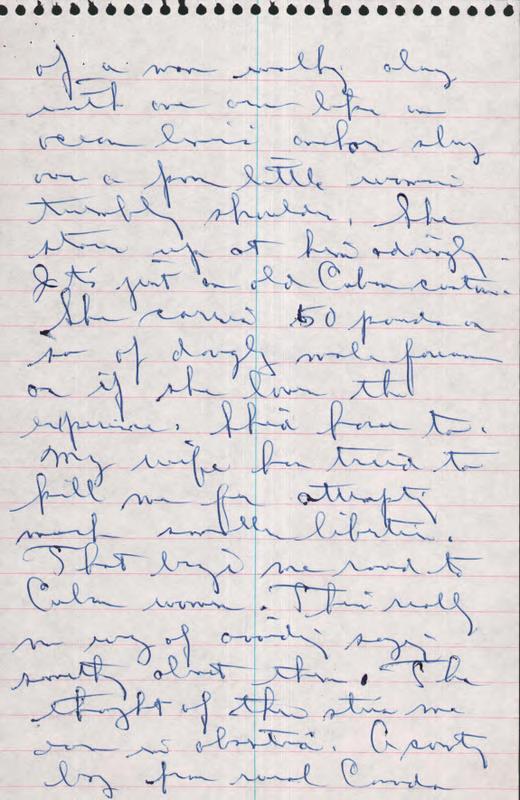 of a man walking along
with one arm like an
ocean liner's anchor slung
over a poor little woman's
trembly shoulder. She
stares up at him adoringly.
It's just an old Cuban custom.
She carries 50 pounds or
so of dangly male forearm
as if she loves the
experience. She'd have to.
My wife has tried to
kill me for attempting
much smaller liberties.
That brings me round to
Cuban women. There's really
no way of avoiding saying
something about them. The
thought of them stirs me
even in
A sporty
boy from rural Canada